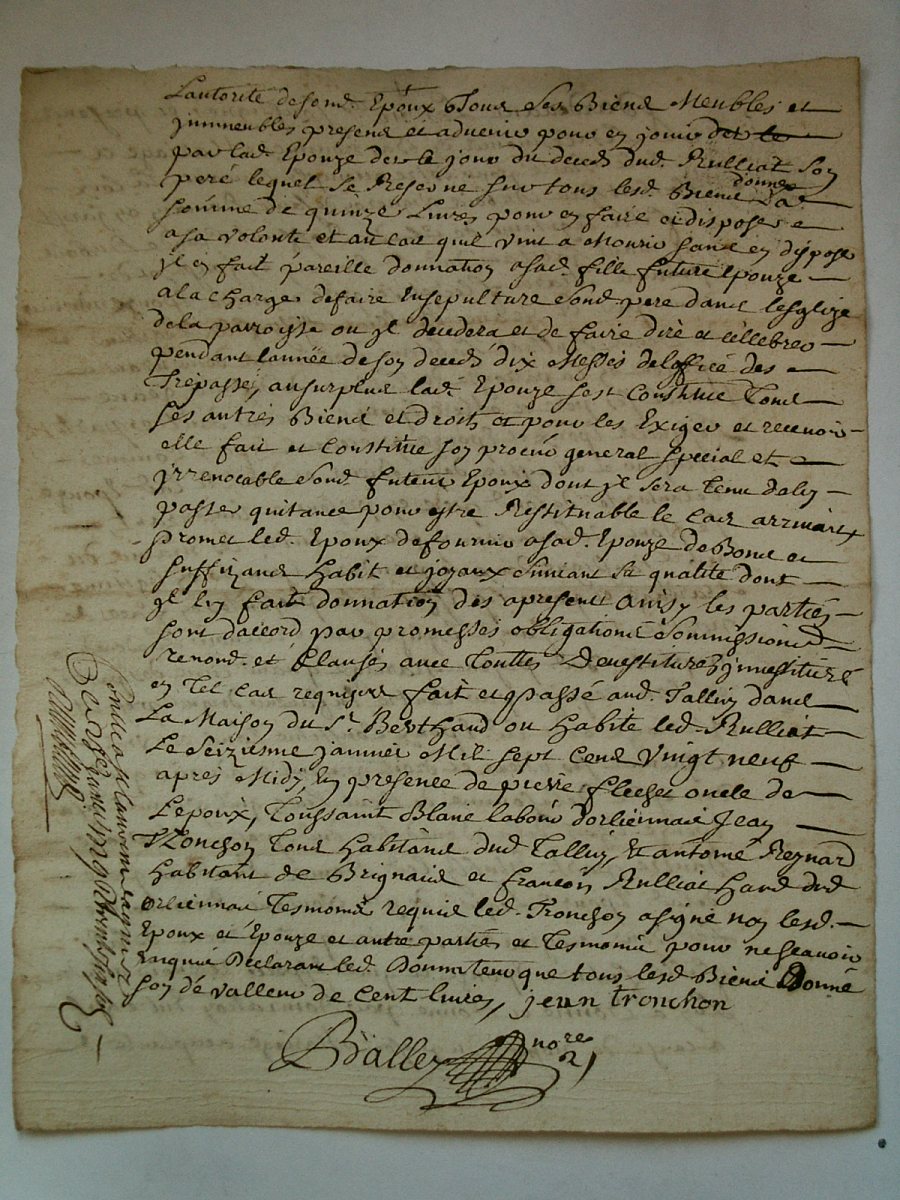 Lautorité desond. Epoux Tous Ses Biens Meubles et
jmmeubles presens et advenir pour en jouir
par lad. Epouze des le jour du deceds dud. Rulliat son
pere lequel se Reserve sur tous lesd. Biens donnes la
somme de quinze Livres pour en faire et disposer
a sa volonté et au cas quil vint a Mourir sans en dispose
jl en fait pareille donnation asad. fille future epouze
a la charge de faire Ensepulture sond. pere dans lesglize
de la parroisse ou jl decedera et de faire dire et cellebrer
pendant lannée de son deceds dix Messes de loffice des
Trepassés, au surplus lad. Epouze sest Constitué Tous
ses autres Biens et droits et pour les Exiger et recevoir
elle fait et Constitue son procur general special et
jrrevocable sond. futeur Epoux dont jl sera tenu daluy
passer quitance pour estre Restituable le Cas arrivant
promet led. Epoux de fournir asad. Epouze de Bons et
suffizans habit et joyaux suivant sa qualité dont
jl luy fait donnation des apresent Ainsy les parties
sont daccord par promesses obligations Soumissions
renond. et Clauses avec Touttes Devestitures jnvestiture
en Tel Cas requises fait et passé aud. Talluy dans
La Maison du Sr. Berthaud ou habite led. Rulliat
Le Seizisme janvier Mil sept Cens Vingt neuf
apres Midy, En presence de pierre flechet oncle de
Lepoux, Toussaint Blanc labour dorliennas Jean
Tronchon Tous habitans dud. Talluy, Et antoine Reynard
habitant de Brignais et francois Rulliat dud.
orliennas Tesmoins requis led. Tronchon a signé non lesd.
Epoux et Epouze et autre parties et Tesmoins pour ne scavoir
Enquis Declarant led. Donnateur que tous lesd. Biens Donné
son de valleur de Cent livres, jean tronchon
Balley nore